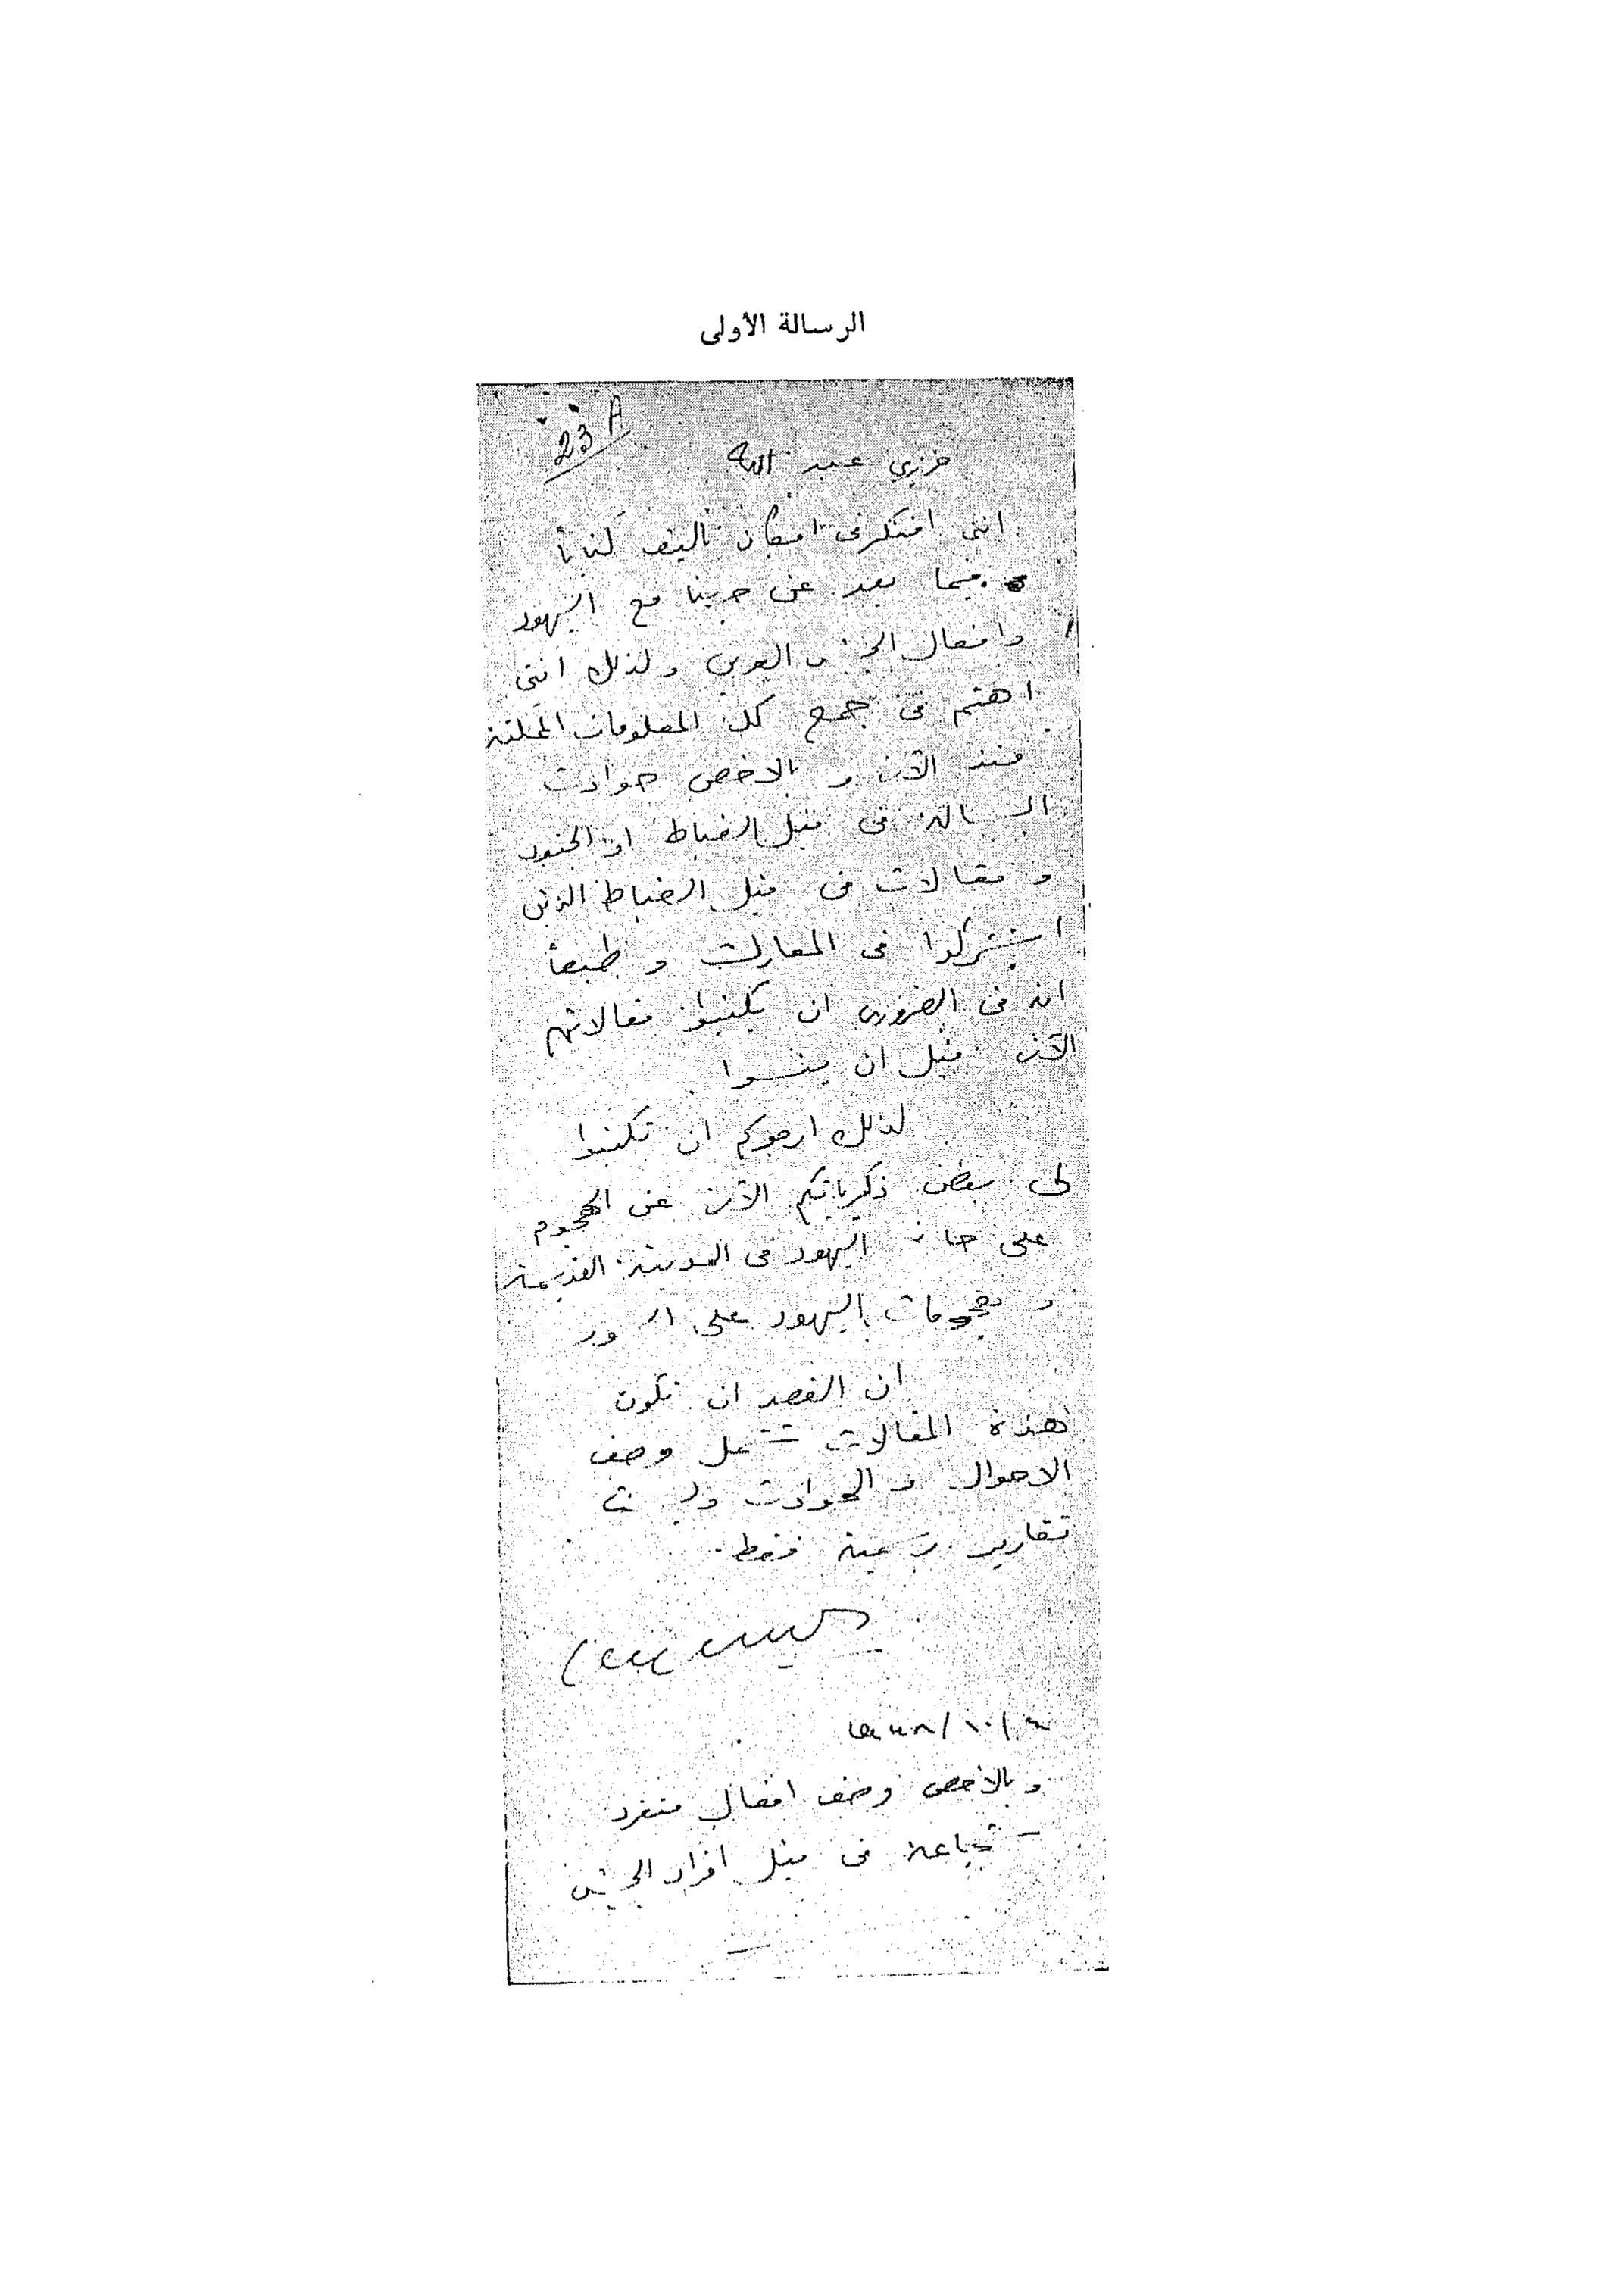 الرسالة الأولى
23A
عزيزي عبد الله
انني افتكر في امكان تأليف كتاباً
فيما بعد عن حربنا مع اليهود
وافعال الجيش العربي ولذلك انني
اهتم في جمع كل المعلومات الممكنة
منذ الآن و بالاخص حوادث
البسالة من قبل الضباط او الجنود
و مقالات من قبل الضباط الذين
اشتركوا في المعارك و طبعاً
انه من الضروري ان يكتبوا مقالاتهم
الآن قبل ان ينسوا
لذلك ارجوكم ان تكتبوا
لي بعض ذكرياتكم الآن عن الهجوم
على حارة اليهود في المدينة القديمة
و هجومات اليهود على السور
ان القصد ان تكون
هذه المقالات تشمل وصف
الاحوال و الحوادث وليست
تقارير رسمية فقط.
و بالاخص وصف افعال منفرد
شجاعة من قبل افراد الجيش